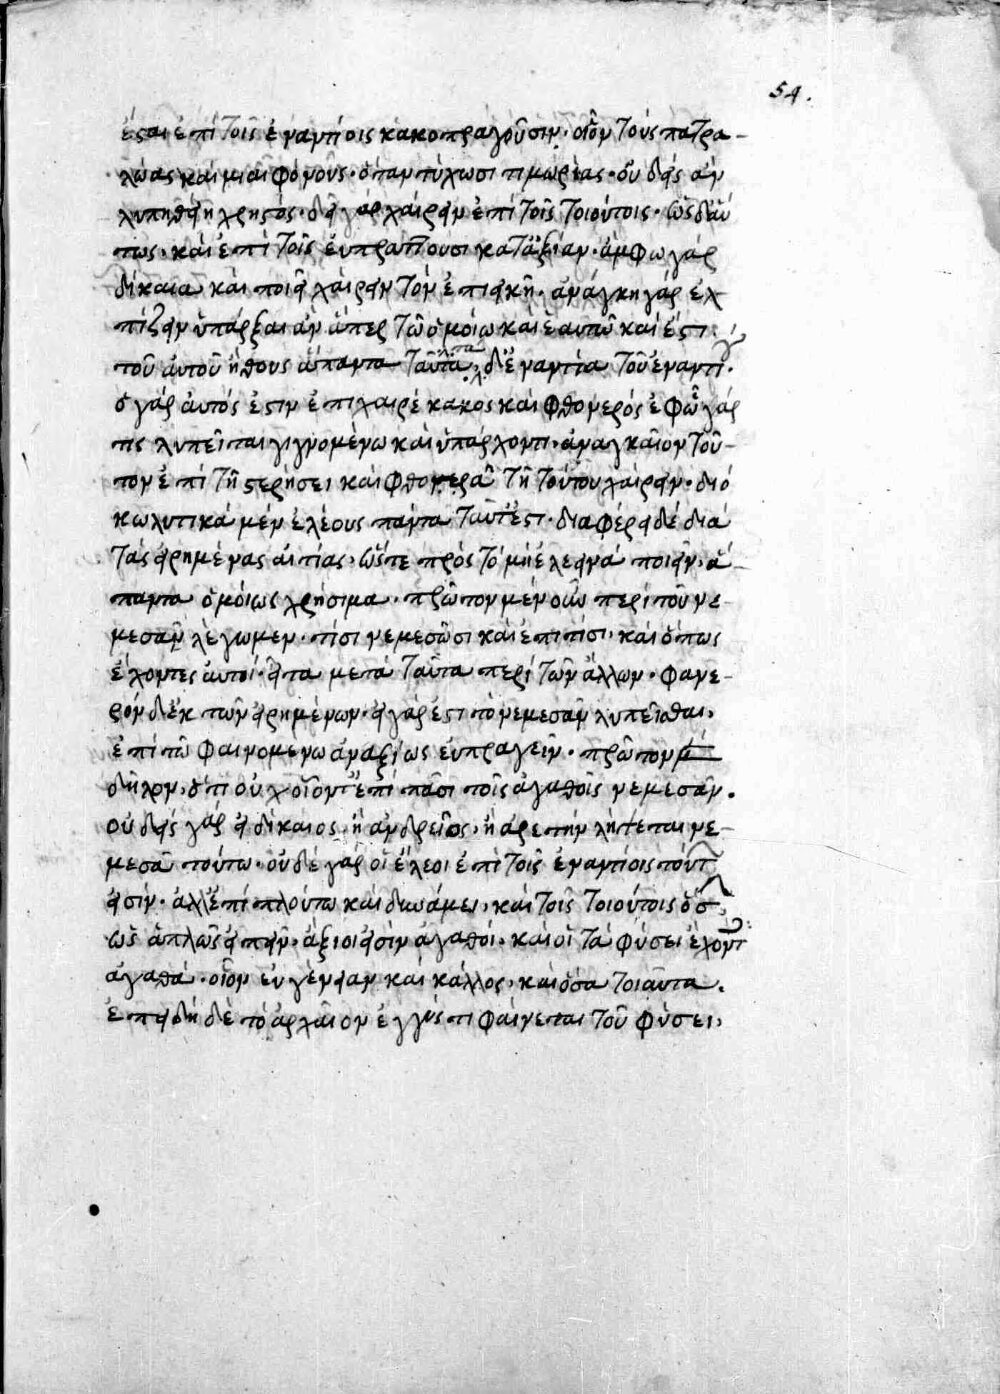 54.
έσται ἐπὶ τοῖς ἐναντίοις κακοπραγοῦσιν· οἷον τοὺς πατρα-
λώας καὶ μιαιφόνους· ὅταν τύχωσι τιμωρίας· οὐδεὶς ἂν
λυπηθείη χρηστός· δεῖ γὰρ χαίρειν ἐπὶ τοῖς τοιούτοις· ὡς δ' αὔ
τως, καὶ ἐπὶ τοῖς εὐπράττουσι κατ' ἀξίαν· ἄμφω γὰρ
δίκαια καὶ ποιεῖ χαίρειν τὸν ἐπιεικῆ· ἀνάγκη γὰρ ἐλ
πίζειν ὑπάρξαι ἂν ἅπερ τῶ ὁμοίω καὶ ἑαυτῶ καὶ ἔστι
τοῦ αὐτοῦ ἤθους ἅπαντα ταῦτα, δ' ἐναντία τοῦ ἐναντί·
ὁ γὰρ αὐτός ἐστιν ἐπιχαιρέκακος καὶ φθονερός ἐφ' ὧ γάρ
τις λυπεῖται γιγνομένω καὶ ὑπάρχοντι, ἀναγκαῖον τοῦ-
τον ἐπὶ τῆ στερήσει καὶ φθορᾶ τῆ τούτου χαίρειν· διὸ
κωλυτικὰ μὲν ἐλέους πάντα ταῦτ' ἐστι· διαφέρει δὲ διὰ
τὰς εἰρημένας αἰτίας, ὥστε πρὸς τὸ μὴ ἐλεεινὰ ποιεῖν, ἅ-
παντα ὁμοίως χρήσιμα· πρῶτον μὲν οὖν περὶ τοῦ νε-
μεσᾶν λέγωμεν· τίσι νεμεσῶσι καὶ ἐπὶ τίσι, καὶ ὅπως
ἔχοντες αὐτοί· εἶτα μετὰ ταῦτα περὶ τῶν ἄλλων· φανε-
ρὸν δ' ἐκ τῶν εἰρημένων· εἰ γάρ ἐστι τὸ νεμεσᾶν λυπεῖσθαι,
ἐπὶ τῶ φαινομένω ἀναξίως εὐπραγεῖν· πρῶτον μὲν
δῆλον, ὅτι οὐχ οἷόν τ' ἐπὶ πᾶσι τοῖς ἀγαθοῖς νεμεσᾶν.
οὐδεὶς γὰρ εἰ δίκαιος, ἢ ἀνδρεῖος, ἢ ἀρετὴν λήψεται νε-
μεσᾶ τούτω· οὐδὲ γὰρ οἱ ἔλεοι ἐπὶ τοῖς ἐναντίοις τούτ
εἰσίν· ἀλλ' ἐπὶ πλούτω καὶ δυνάμει, καὶ τοῖς τοιούτοις ὅσ
ὡς ἁπλῶς εἰπεῖν· ἄξιοι εἰσὶν ἀγαθοί· καὶ οἱ τὰ φύσει ἔχοντ
ἀγαθά· οἷον εὐγένειαν καὶ κάλλος, καὶ ὅσα τοιαῦτα.
ἐπειδὴ δὲ τὸ ἀρχαῖον ἐγγύς τι φαίνεται τοῦ φύσει,